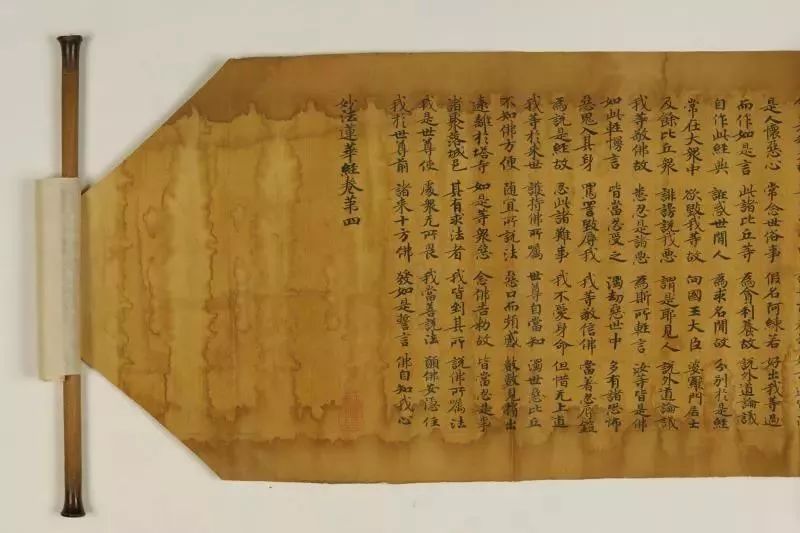 是人懷惡心 常念世俗事 假名阿練若 好出我等過
而作如是言 此諸比丘等 為貪利養故 說外道論議
自作此經典 誑惑世間人 為求名聞故 分別於是經
常在大衆中 欲毀我等故 向國王大臣 婆羅門居士
及餘比丘衆 誹謗說我惡 謂是耶見人 說外道論議
我等敬佛故 悉忍是諸惡 為斯所輕言 汝等皆是佛
如此輕慢言 皆當忍受之 濁劫惡世中 多有諸恐怖
惡鬼入其身 罵詈毀辱我 我等敬信佛 當著忍辱鎧
為說是經故 忍此諸難事 我不愛身命 但惜无上道
我等於來世 護持佛所囑 世尊自當知 濁世惡比丘
不知佛方便 隨宜所說法 惡口而頻蹙 數數見擯出
遠離於塔寺 如是等衆惡 念佛告勑故 皆當忍是事
諸聚落城邑 其有求法者 我皆到其所 說佛所囑法
我是世尊使 處衆无所畏 我當善說法 願佛安隱住
我於世尊前 諸來十方佛 發如是誓言 佛自知我心
妙法蓮華經卷第四